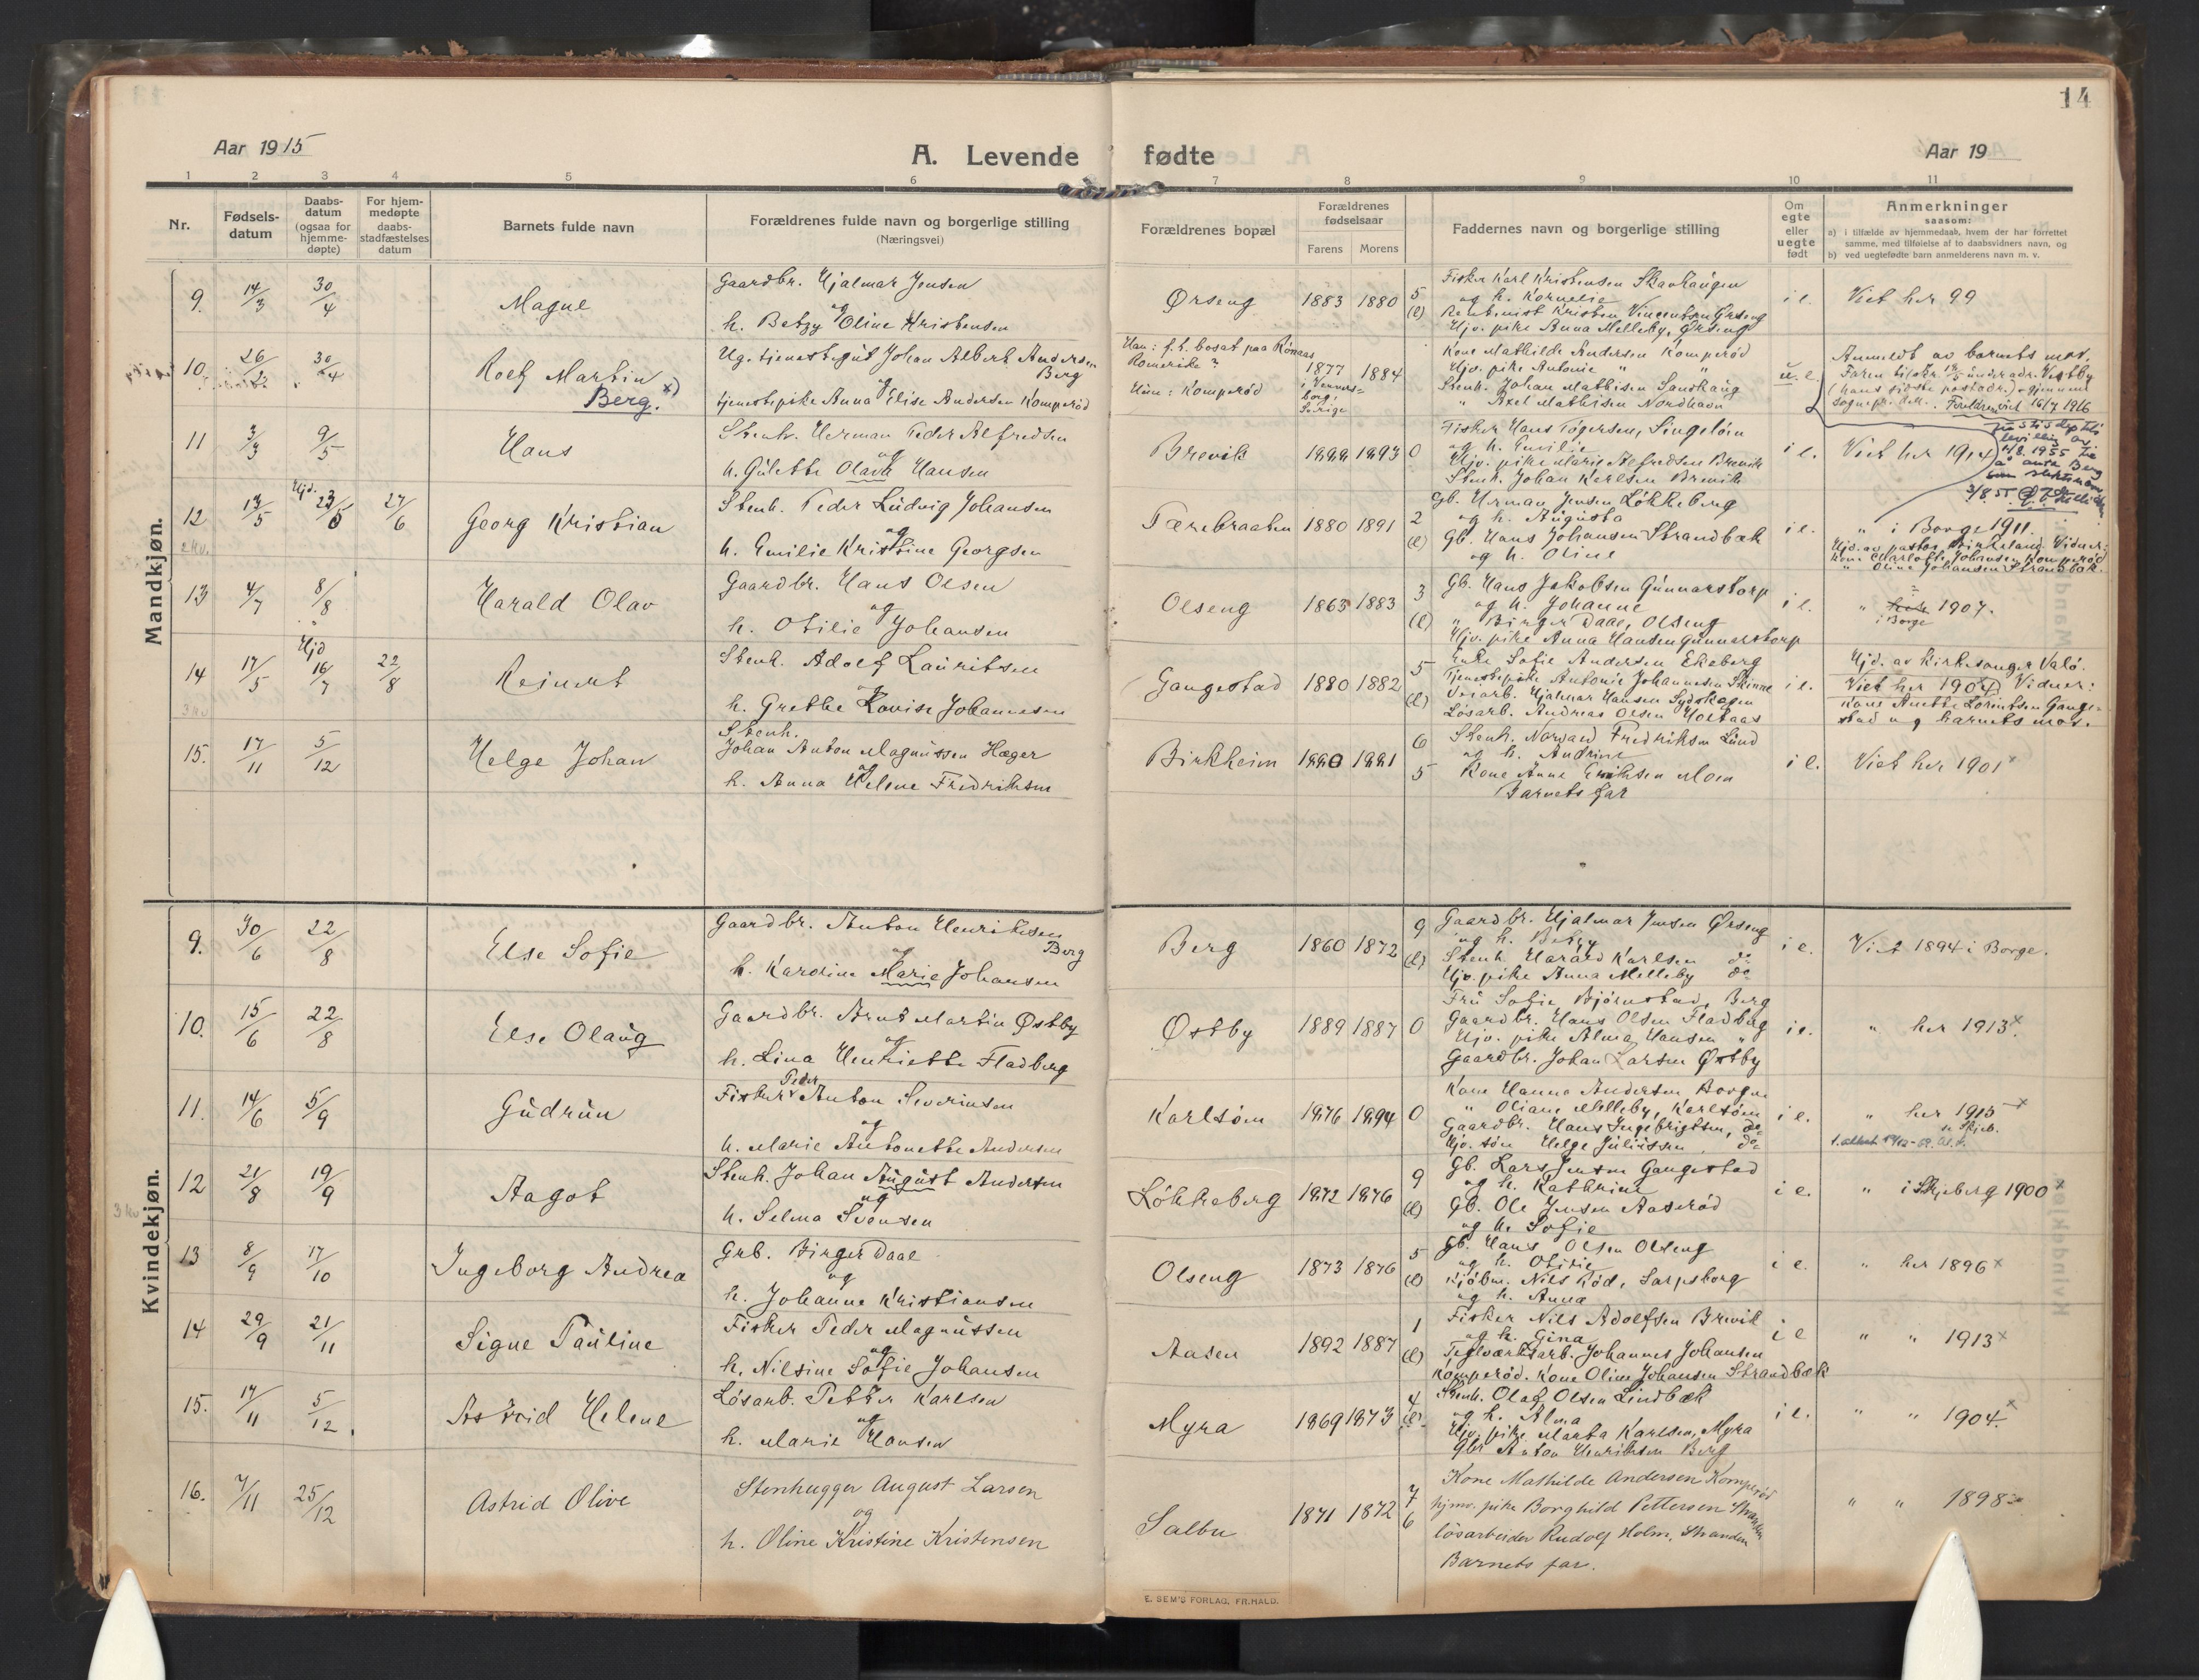 14
Aar 1915
A. Levende fødte
Aar 19
1 2 3 4 5 6 7 8 9 10 11
Nr.
Fødsels-
datum
Daabs-
datum
(ogsaa for
hjemme-
døpte)
For hjem-
medøpte
daabs-
stadfæstelses
datum
Barnets fulde navn
Forældrenes fulde navn og borgerlige stilling
(Næringsvei)
Forældrenes bopæl
Forældrenes
fødselsaar
Farens Morens
Faddernes navn og borgerlige stilling
Om
egte
eller
uegte
født
Anmerkninger
saasom:
a) i tilfælde av hjemmedaab, hvem der har forrettet
samme, med tilføielse af to daabsvidners navn, og
b) ved uegtefødte barn anmelderens navn m. v.
Mandkjøn.
9. 14/3 30/4
Magne
Gaardbr. Hjalmar Jensen
og
h. Betzy Oline Kristensen
Ørseng
1883 1880
5
(l)
Fisker Karl Kristensen Skavhaugen
og h. Kornelie
Rentenist Kristen Vincentsen Ørseng
Hjv. pike Anna Melleby, Ørseng
i e.
Viet her 99
10. 26/2 30/4
Rolf Martin
Berg. x)
Ug. tjenestegut Johan Albert Andersen
Berg
og
tjenestepike Anna Elise Andersen Komperød
Han: f. t. bosat paa Rønaas
Romerike?
Hun: Komperød
1877 1884
i Venners-
borg,
Sverige
Kone Mathilde Andersen Komperød
Hjv. pike Antonie " "
Stenh. Johan Mathisen Sandhaug
" Axel Mathisen Nordhavn
u. e.
Anmeldt av barnets mor.
Faren tilskr. 13/5 under adr. Vestby
(hans sidste postadr.) gjennem
sognepr. dell. Foreldre viet 16/7 1916
11 3/3 9/5
Hans
Stenh. Herman Peder Alfredsen
og
h. Gulette Olava Hansen
Brevik
1888 1893
0
Fisker Hans Togersen, Singeløen
og h. Emilie
Hjv. pike Marie Alfredsen Brevik
Stenh. Johan Karlsen Brevik
i e.
Viet her 1914
1/8. 1955
å anta Berg
som slektsnavn
3/8.55
12 13/5 Hjd. 23/5 27/6
2 kv.
Georg Kristian
Stenh. Peder Ludvig Johansen
og
h. Emilie Kristine Georgsen
Tærebraaten
1880 1891
2
(l)
Gb. Herman Jensen Løkkeberg
og h. Augusta
Gb. Hans Johansen Strandbæk
og h. Oline
i e.
" i Borge 1911.
Hjd. av pastor Birkeland. Vidner:
Kone Charlotte Johansen, Komperød
" Oline Johansen Strandbæk.
13 4/7 8/8
Harald Olav
Gaardbr. Hans Olsen
og
h. Otilie Johansen
Olseng
1863 1883
3
(l)
Gb. Hans Jakobsen Gunnarstorp
og h. Johanne
" Birger Daae, Olseng
Hjv. pike Anna Hansen Gunnarstorp
i e.
" her 1907.
i Borge
14 17/5 Hjd 16/7 22/8
3 kv
Reinert
Stenh. Adolf Lauritsen
og
h. Grethe Lovise Johannesen
Gangestad
1880 1882
5
(l)
Enke Sofie Andersen Ekeberg
Tjenestepike Antonie Johannesen Skinne
Veiarb. Hjalmar Hansen Sydskogen
Løsarb. Andreas Olsen Holtaas
i e.
Hjd. av kirkesanger Valö.
Viet her 1904. Vidner:
Kone Anette Lorentsen Gange-
stad og barnets mor.
15. 17/11 5/12
Helge Johan
Stenh.
Johan Anton Magnussen Hæger
og
h. Anna Helene Fredriksen
Birkheim
1880 1881
6
5
Stenh. Norvard Fredriksen Lund
og h. Andrine
Kone Anne Eriksen Moen
Barnets far
i e.
Viet her 1901 x
Kvindekjøn.
9. 30/6 22/8
Else Sofie
Gaardbr. Anton Henriksen
Berg
og
h. Karoline Marie Johansen
Berg
1860 1872
9
(l)
Gaardbr. Hjalmar Jensen Ørseng
og h. Betzy
Stenh. Harald Karlsen do
Hjv. pike Anna Melleby do
i e.
Viet 1894 i Borge.
10. 15/6 22/8
Else Olaug
Gaardbr. Arnt Martin Østby
og
h. Lina Henriette Fladberg
Østby
1889 1887
0
Fru Sofie Bjørnstad, Berg
Gaardbr. Hans Olsen Fladberg
Hjv. pike Alma Hansen "
Gaardbr. Johan Larsen Østby
i e.
" her 1913 x
11. 14/6 5/9
Gudrun
Peder
Fisker Anton Severinsen
og
h. Marie Antonette Andersen
Karlsøm
1876 1894
0
Kone Hanna Andersen Borgen
" Oliane Melleby, Karlsøm
Gaardbr. Hans Ingebrigtsen, do
Hjv. søn Helge Juliussen, do
i e.
" her 1915 x
12 21/8 19/9
3 kv
Aagot
Stenh. Johan August Andersen
og
h. Selma Svensen
Løkkeberg
1872 1876
9
(l)
Gb. Lars Jensen Gangestad
og h. Kathrine
Gb. Ole Jensen Aaserød
og h. Sofie
i e.
" i Skjeberg 1900 x
13 8/9 17/10
Ingeborg Andrea
Grb. Birger Daae
og
h. Johanne Kristiansen
Olseng
1873 1876
5
(l)
Gb. Hans Olsen Olseng
og h. Otilie
Kjøbm. Nils Rød, Sarpsborg
og h. Anna
i e.
" her 1896 x
14 29/9 21/11
Signe Pauline
Fisker Peder Magnussen
og
h. Nilsine Sofie Johansen
Aasen
1892 1887
1
(l)
Fisker Nils Adolfsen Brevik
og h. Gina
Teglværksarb. Johannes Johansen
Komperød. Kone Oline Johansen Strandbæk
i e
" " 1913 x
15. 17/11 5/12.
Astrid Helene
Løsarb. Petter Karlsen
og
h. Marie Hansen
Myra
1869 1873
4
(l)
Stenh. Olaf Olsen Lindbæk
og h. Alma
Hjv. pike Marta Karlsen, Myra
Gbr Anton Henriksen Berg
i e.
" " 1904. x
16. 7/11 25/12
Astrid Olive
Stenhugger August Larsen
og
h. Oline Kristine Kristensen
Salbu
1871 1872
7
6
Kone Mathilde Andersen Komperød
hjmv. pike Borghild Pettersen Stranden
løsarbeider Rudolf Holm, Stranden
Barnets far.
" " 1898
E. SEM'S FORLAG, FR.HALD.